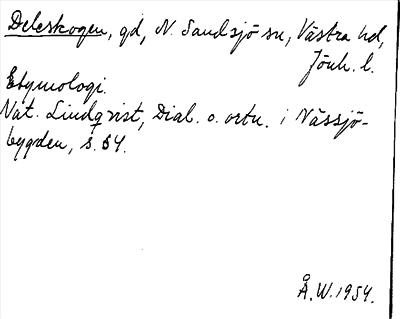 Deleskogen, gd, N. Sandsjö sn, Västra hd,
Jönk. l.
Etymologi.
Nat. Lindqvist, Dial. o. ortn. i Nässjö-
bygden, s. 54.
Å.W. 1954.